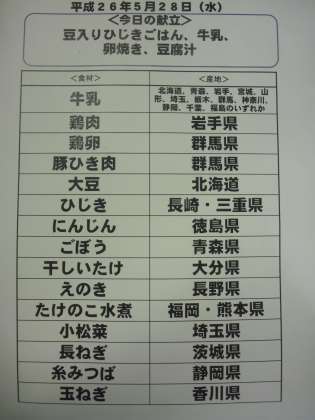 平成26年5月28日(水)
<今日の献立>
豆入りひじきごはん、牛乳、
卵焼き、豆腐汁
<食材> <産地>
牛乳 北海道、青森、岩手、宮城、山
形、埼玉、栃木、群馬、神奈川、
静岡、千葉、福島のいずれか
鶏肉 岩手県
鶏卵 群馬県
豚ひき肉 群馬県
大豆 北海道
ひじき 長崎・三重県
にんじん 徳島県
ごぼう 青森県
干しいたけ 大分県
えのき 長野県
たけのこ水煮 福岡・熊本県
小松菜 埼玉県
長ねぎ 茨城県
糸みつば 静岡県
玉ねぎ 香川県